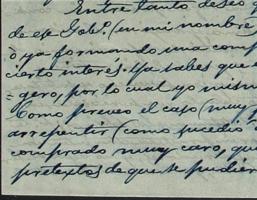 Entre tanto deseo q
de ese Gobo. (en mi nombre)
ò ya formando una comp
cierto interés. Ya sabes que e
=gero, por lo cual yo mism
Como preveo el caso (muy p
arrepentir (como sucediò
comprado muy caro, qu
pretextos de que se pudier